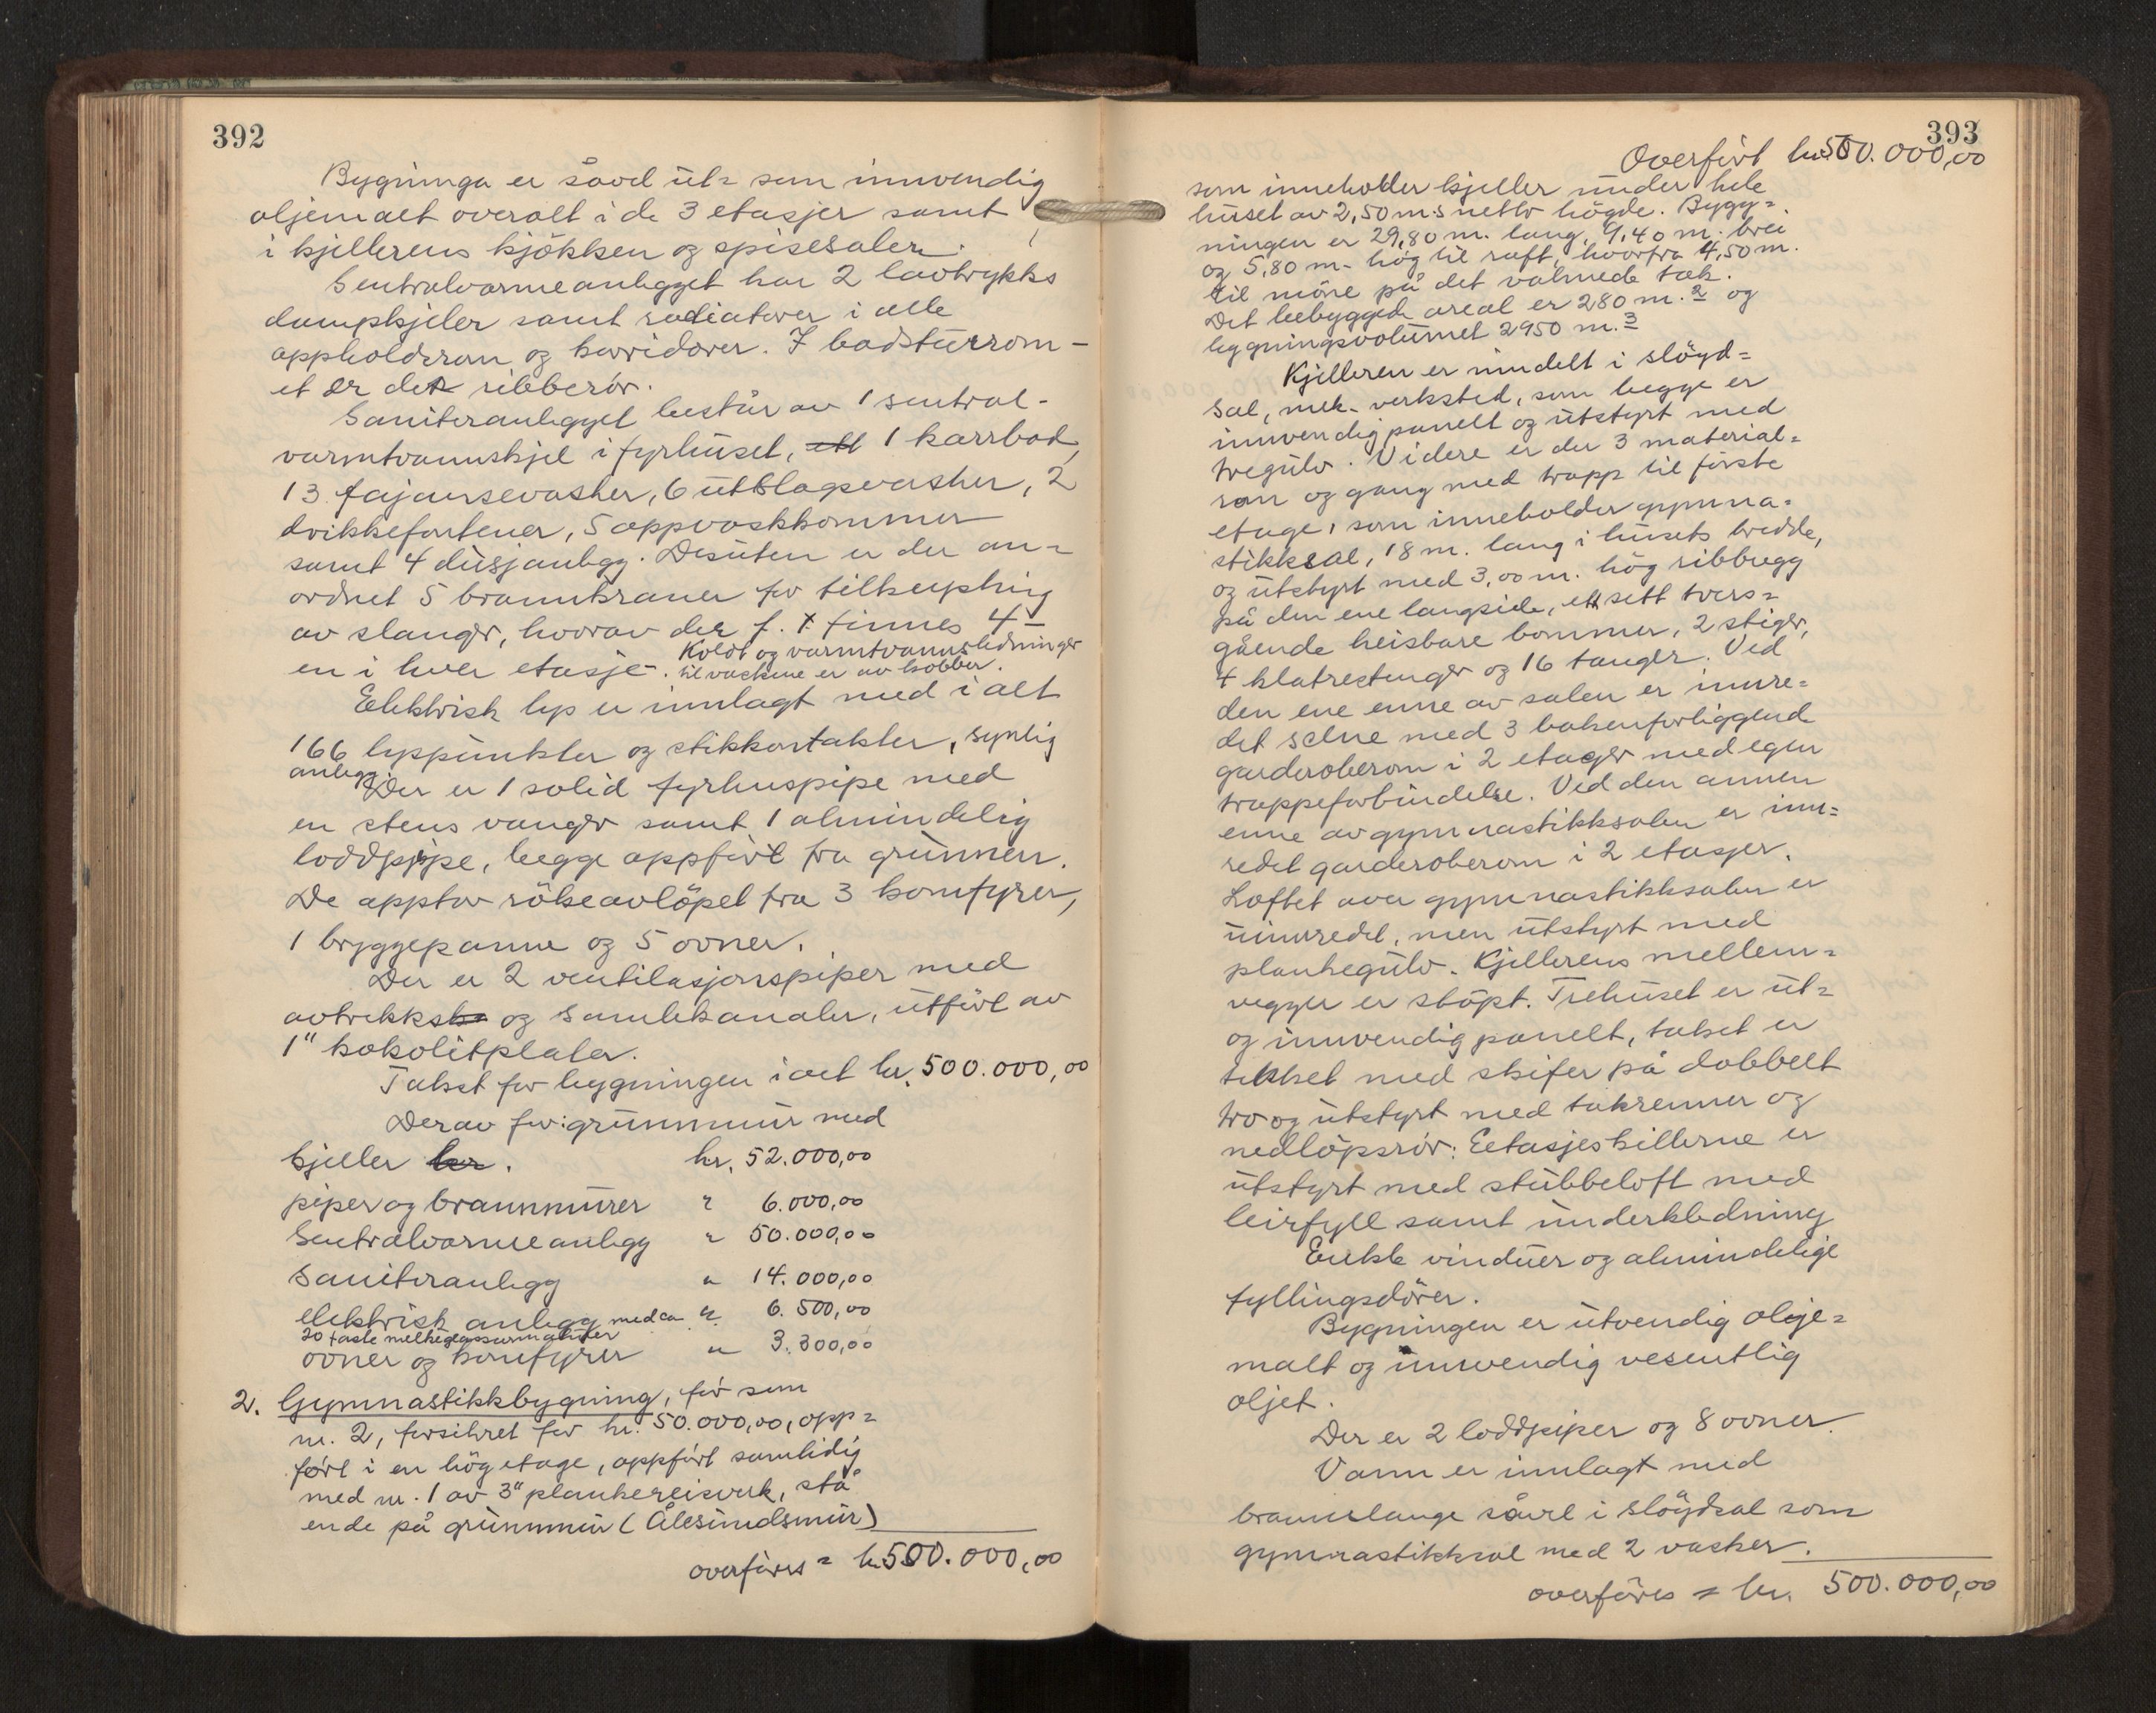 392
Bygninga er såvel ut= som innvendig
oljemalt overalt i de 3 etasjer samt
i kjellerens kjökken og spisesaler.
Sentralvarmeanlegget har 2 lavtrykks
dampkjeler samt radiatorer i alle
oppholdsrom og korridorer. I badstuerrom-
et er det ribberör.
Saniteranlegget består av 1 sentral-
varmtvannskjel i fyrhuset, ett 1 karrbad,
13 fajansevasker, 6 utslagsvasker, 2
drikkefontener, 5 oppvaskkommer
samt 4 dusjanlegg. Desuten er der an=
ordnet 5 brannkraner for tilkopling
av slanger, hvorav der f. t. finnes 4-
en i hver etasje. Koldt og varmtvannsledninger
til vaskene er av kobber.
Elektrisk lys er innlagt med i alt
166 lyspunkter og stikkontakter, synlig
anlegg.
Der er 1 solid fyrhuspipe med
en stens vanger samt 1 almindelig
loddpipe, begge oppfört fra grunnen.
De opptar rökeavlöpet fra 3 komfyrer,
1 bryggepanne og 5 ovner.
Der er 2 ventilasjonspiper med
avtrekks og samlekanaler, utfört av
1" kokolitplater.
Takst for bygningen i alt kr. 500.000,00
Derav for: grunnmur med
kjeller kr. kr. 52.000,00
piper og brannmurer " 6.000,00
Sentralvarmeanlegg " 50.000,00
Saniteranlegg " 14.000,00
elektrisk anlegg med ca " 6.500,00
20 faste melkeglassarmaturer
ovner og komfyrer " 3.300,00
2. Gymnastikkbygning, för som
nr. 2, forsikret for kr. 50.000,00, opp=
fört i en hög etage, oppfört samtidig
med nr. 1 av 3" plankereisverk, stå
ende på grunnmur (Ålesundsmur)
overföres = kr. 500.000,00
393
Overfört kr. 500.000,00
som inneholder kjeller under hele
huset av 2,50 m.s netto högde. Bygg=
ningen er 29,80 m. lang, 9,40 m. brei
og 5,80 m. hög til raft, hvorfra 4,50 m.
til möne på det valmede tak.
Det bebyggede areal er 280 m.2 og
bygningsvolumet 2950 m.3
Kjelleren er inndelt i slöyd=
sal, mek. verksted, som begge er
innvendig panelt og utstyrt med
tregulv. Videre er der 3 material=
rom og gang med trapp til förste
etage, som inneholder gymna=
stikksal, 18 m. lang i husets bredde,
og utstyrt med 3,00 m. hög ribbvegg
på den ene langside, ett sett tvers=
gående heisbare bommer, 2 stiger,
4 klatrestenger og 16 tauger. Ved
den ene enne av salen er innre=
det scene med 3 bakenforliggende
garderoberom i 2 etager med egen
trappeforbindelse. Ved den annen
enne av gymnastikksalen er inn=
redet garderoberom i 2 etasjer.
Loftet over gymnastikksalen er
uinnredet, men utstyrt med
plankegulv. Kjellerens mellem=
vegger er stöpt. Trehuset er ut=
og innvendig panelt, taket er
tekket med skifer på dobbelt
tro og utstyrt med takrenner og
nedlöpsrör. Eetasjeskillerne er
utstyrt med stubbeloft med
leirfyll samt underkledning
Enkle vinduer og almindelige
fyllingsdörer.
Bygningen er utvendig olje=
malt og innvendig vesentlig
oljet.
Der er 2 loddpiper og 8 ovner.
Vann er innlagt med
brannslange såvel i slöydsal som
gymnastikksal med 2 vasker.
overföres = kr. 500.000,00